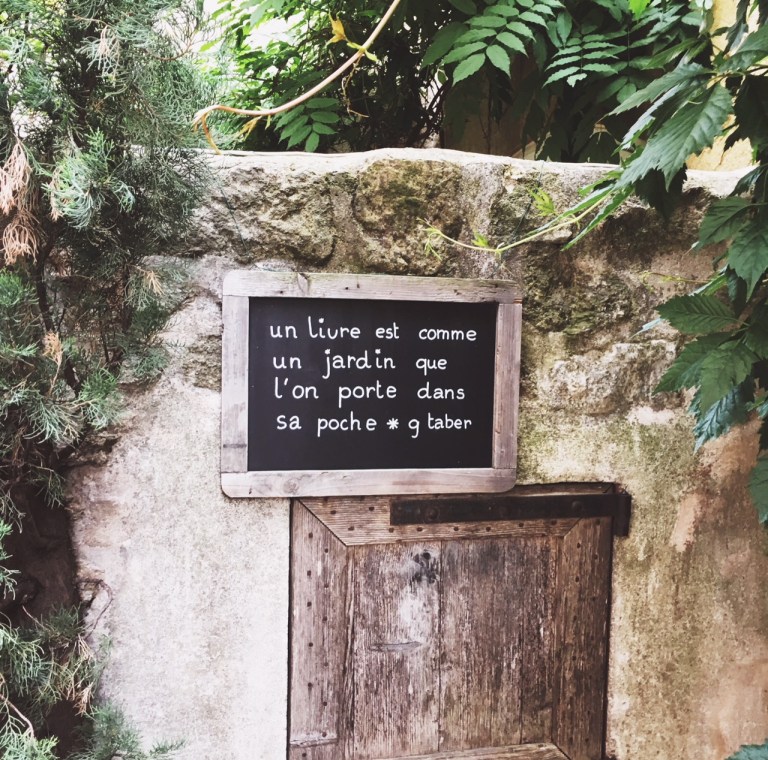 un livre est comme
un jardin que
l'on porte dans
sa poche * g taber